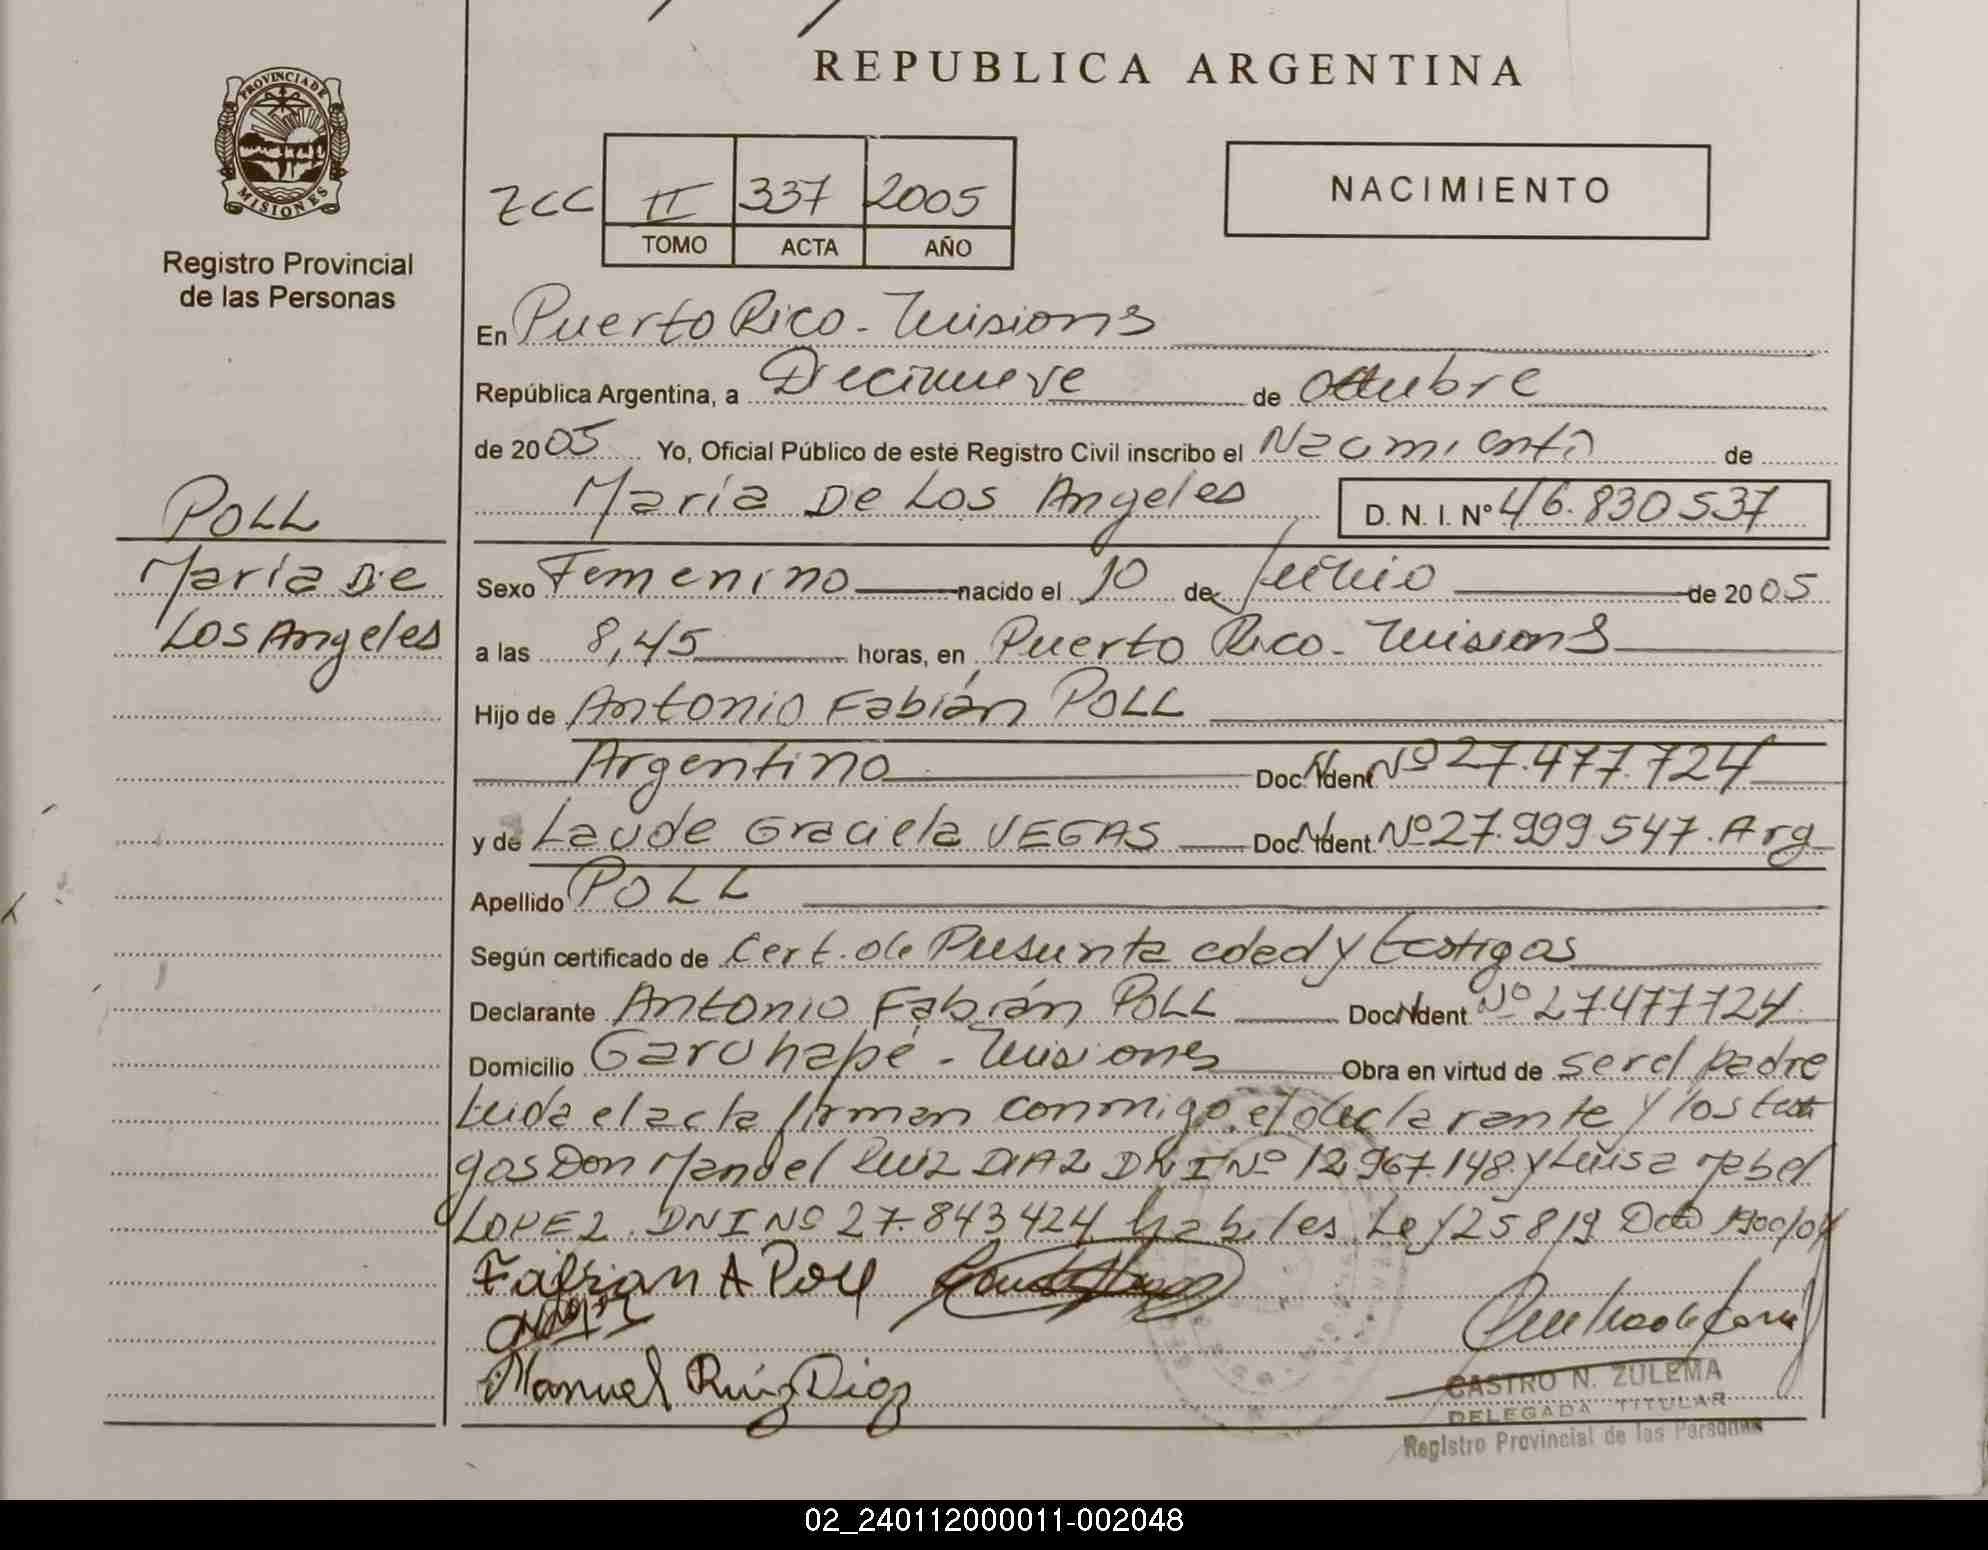 REPUBLICA ARGENTINA
PROVINCIA DE
MISIONES
Registro Provincial
de las Personas
ZCC II 337 2005
TOMO ACTA AÑO
NACIMIENTO
En Puerto Rico - Misiones
República Argentina, a Diecinueve de octubre
de 2005 Yo, Oficial Público de este Registro Civil inscribo el Nacimiento de
María De Los Angeles D. N. I. Nº 46.830537
POLL
María De
Los Angeles
Sexo Femenino nacido el 10 de Junio de 2005
a las 8,45 horas, en Puerto Rico - Misiones
Hijo de Antonio Fabián POLL
Argentino Doc. Ident Nº 27.477.724
y de Laude Graciela VEGAS Doc. Ident Nº 27.999.547. Arg
Apellido POLL
Según certificado de Cert. de Presunta edad y testigos
Declarante Antonio Fabián POLL Doc. Ident Nº 27477724
Domicilio Garuhapé - Misiones Obra en virtud de ser el padre
Leida el acta firman conmigo el declarante y los testi
gos Don Manuel Ruiz DIAZ DNI Nº 12.967.148 y Luisa Mabel
LOPEZ DNI Nº 27.843424 habiles Ley 25819 Dcto 1900/04
Fabian A Poll
Manuel Ruiz Diaz
CASTRO N. ZULEMA
DELEGADA TITULAR
Registro Provincial de las Personas
02_240112000011-002048